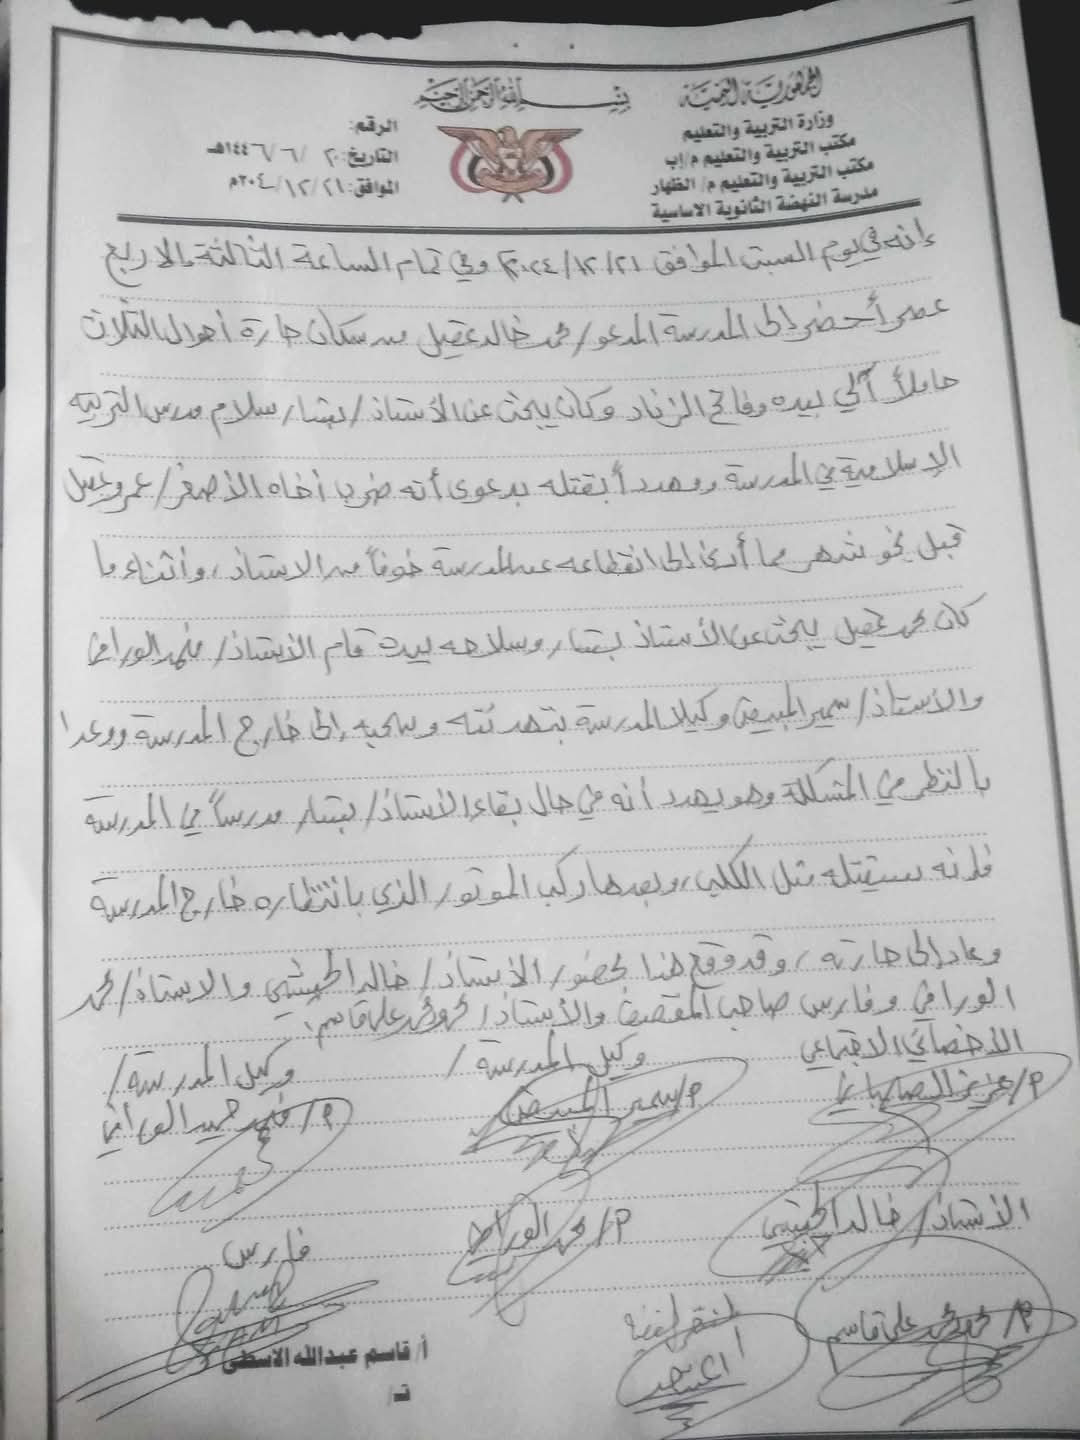 بسم الله الرحمن الرحيم
الجمهورية اليمنية
وزارة التربية والتعليم
مكتب التربية والتعليم م/إب
مكتب التربية والتعليم م/ الظهار
مدرسة النهضة الثانوية الاساسية
الرقم:
التاريخ: ٢٠ / ٦ / ١٤٤٦هـ
الموافق: ٢١ / ١٢ /
إنه في يوم السبت الموافق ٢١/١٢/٢٠٢٤م وفي تمام الساعة الثالثة إلا ربع
عصراً حضر إلى المدرسة المدعو/ محمد خالد عقيل من سكان حارة أهوال الثلاث
حاملاً آلي بيده وفاتح الزناد وكان يبحث عن الأستاذ/ بشار سلام مدرس التربية
الإسلامية في المدرسة ومهدداً بقتله بدعوى أنه ضرب أخاه الأصغر/ عمرو عقيل
قبل نحو شهر مما أدى إلى انقطاعه عن المدرسة خوفاً من الاستاذ، وأثناء ما
كان محمد عقيل يبحث عن الأستاذ بشار وسلاحه بيده قام الأستاذ/ فهد الورافي
والأستاذ/ سمير المبيض وكيلا المدرسة بتهدئته وسحبه إلى خارج المدرسة ووعدا
بالنظر في المشكلة وهو يهدد أنه في حال بقاء الأستاذ/ بشار مدرساً في المدرسة
فإنه سيقتله مثل الكلب، وبعدها ركب الموتور الذي بانتظاره خارج المدرسة
وعاد إلى حارته، وقد وقع هذا بحضور الأستاذ/ خالد الحبيشي والاستاذ/ محمد
الورافي وفارس صاحب المقصف والأستاذ/ محمد محمد علي قاسم.
الأخصائي الاجتماعي وكيل المدرسة/ وكيل المدرسة/
م/ عزيز م/ سمير المبيض م/ فهد حميد الورافي
الأستاذ/ خالد الحبيشي م/ محمد الورافي فارس
م/ محمد محمد علي قاسم
أ/ قاسم عبدالله الاسطى
ت/